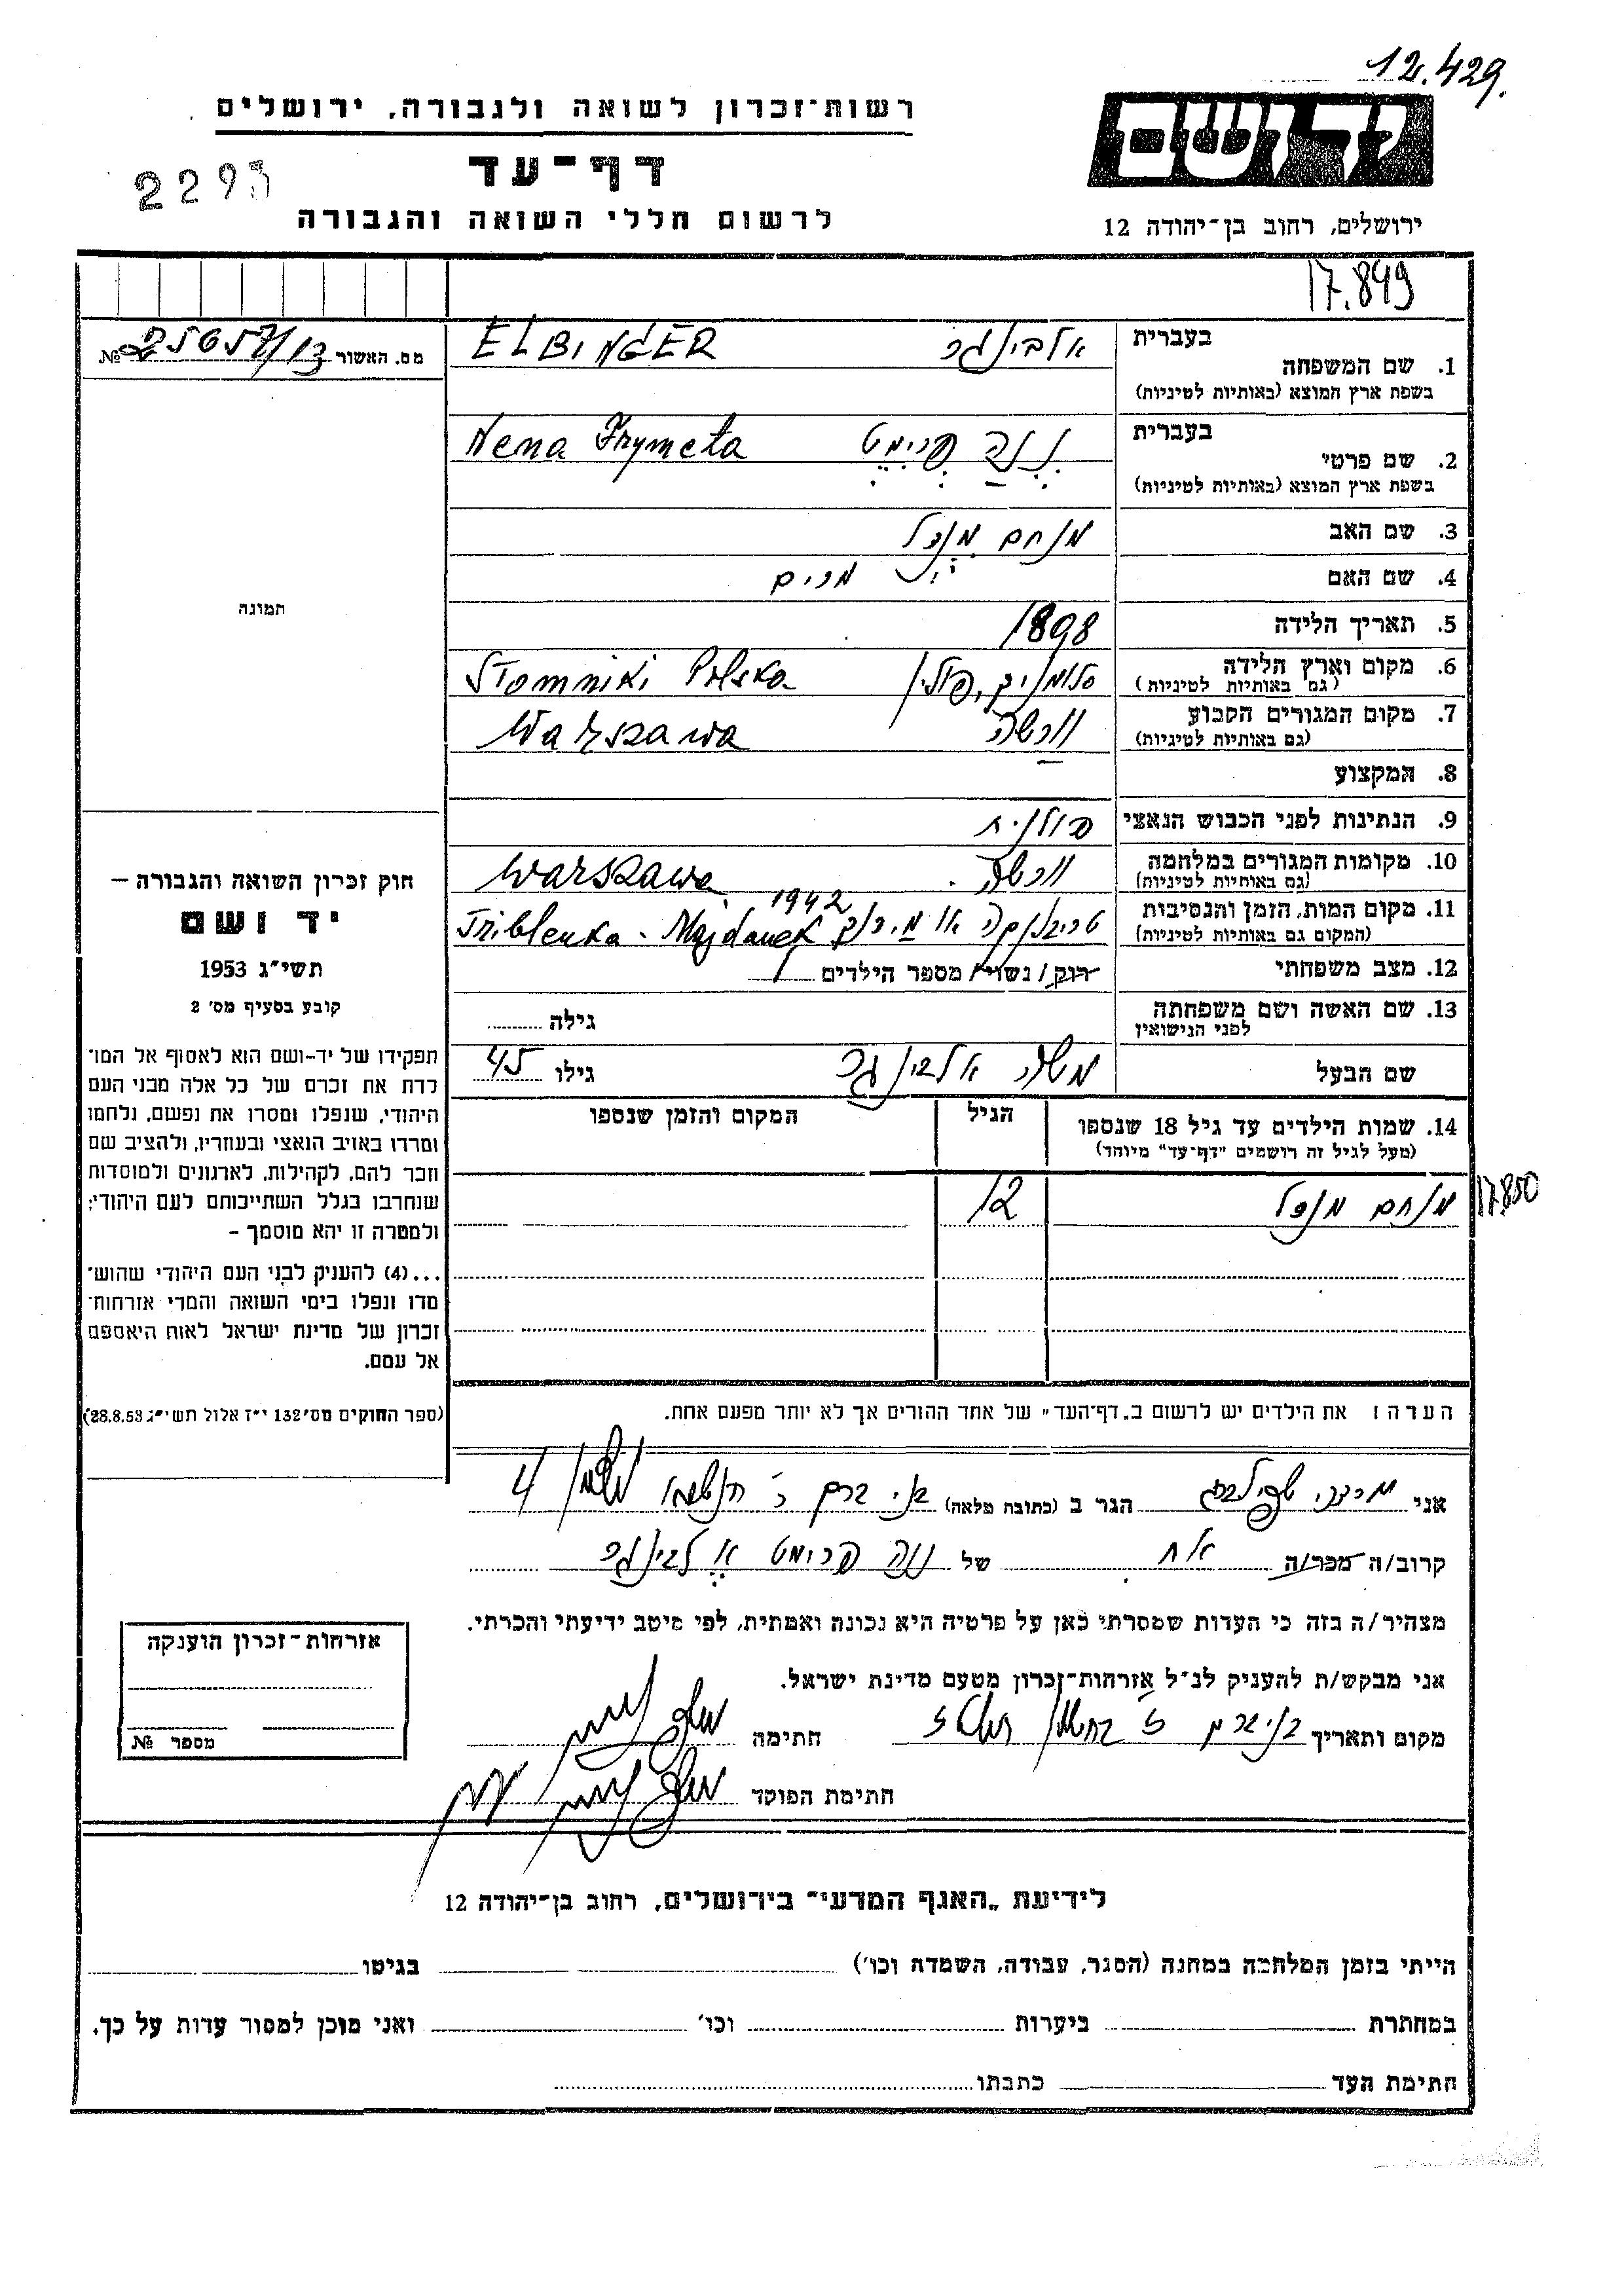 12.429.
רשות־זכרון לשואה ולגבורה, ירושלים
יד ושם
דף־עד
2293
לרשום חללי השואה והגבורה
ירושלים, רחוב בן־יהודה 12
17.849
מס. האשור №
1. שם המשפחה בעברית אלבינגר ELBINGER
בשפת ארץ המוצא (באותיות לטיניות)
2. שם פרטי בעברית נֶנַה פְרִימֶט Nena Frymeta
בשפת ארץ המוצא (באותיות לטיניות)
3. שם האב מנחם מֶנְדל
4. שם האם מרים
5. תאריך הלידה 1898
6. מקום וארץ הלידה סלומניק, פולין Słomniki Polska
(גם באותיות לטיניות)
7. מקום המגורים הקבוע וורשה Warszawa
(גם באותיות לטיניות)
8. המקצוע
9. הנתינות לפני הכבוש הנאצי פולנית
10. מקומות המגורים במלחמה וורשה Warszawa
(גם באותיות לטיניות)
1942
11. מקום המות, הזמן והנסיבות טריבלנקה או מידנק Triblenka - Majdanek
(המקום גם באותיות לטיניות)
12. מצב משפחתי רווק / נשוי / מספר הילדים 1
13. שם האשה ושם משפחתה גילה
לפני הנישואין
שם הבעל משה אלבינגר גילו 45
14. שמות הילדים עד גיל 18 שנספו הגיל המקום והזמן שנספו
(מעל לגיל זה רושמים "דף־עד" מיוחד)
מנחם מנדל 12
17.850
תמונה
חוק זכרון השואה והגבורה –
יד ושם
תשי״ג 1953
קובע בסעיף מס׳ 2
תפקידו של יד-ושם הוא לאסוף אל המו־
לדת את זכרם של כל אלה מבני העם
היהודי, שנפלו ומסרו את נפשם, נלחמו
ומרדו באויב הנאצי ובעוזריו, ולהציב שם
וזכר להם, לקהילות, לארגונים ולמוסדות
שנחרבו בגלל השתייכותם לעם היהודי;
ולמטרה זו יהא מוסמך –
...(4) להעניק לבני העם היהודי שהוש־
מדו ונפלו בימי השואה והמרי אזרחות־
זכרון של מדינת ישראל לאות היאספם
אל עמם.
(ספר החוקים מס׳ 132 י״ז אלול תשי״ג 28.8.53)
הערה: את הילדים יש לרשום ב„דף־העד" של אחד ההורים אך לא יותר מפעם אחת.
אני מרדכי הגר ב (כתובת מלאה) בני ברק 4
קרוב/ה מכר/ה אח של ננה פרימט אלבינגר
מצהיר/ה בזה כי העדות שמסרתי כאן על פרטיה היא נכונה ואמתית, לפי מיטב ידיעתי והכרתי.
אני מבקש/ת להעניק לנ״ל אזרחות־זכרון מטעם מדינת ישראל.
מקום ותאריך בני ברק חתימה
חתימת הפוקד
אזרחות־זכרון הוענקה
מספר №
לידיעת „האגף המדעי" בירושלים, רחוב בן־יהודה 12
הייתי בזמן המלחמה במחנה (הסגר, עבודה, השמדה וכו׳) בגיטו
במחתרת ביערות וכו׳ ואני מוכן למסור עדות על כך.
חתימת העד כתבתו